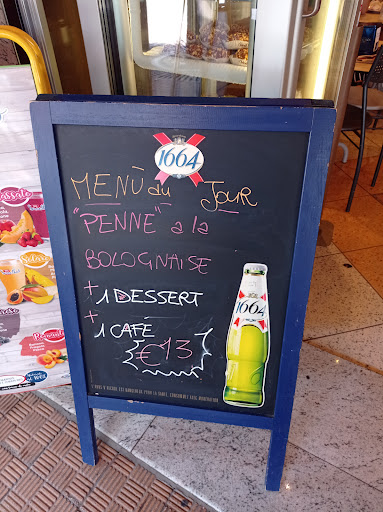 1664
MENÙ du JOUR
"PENNE" a la
BOLOGNAISE
+ 1 DESSERT
+
1 CAFE
€13
1664
L'ABUS D'ALCOOL EST DANGEREUX POUR LA SANTÉ, CONSOMMEZ AVEC MODÉRATION